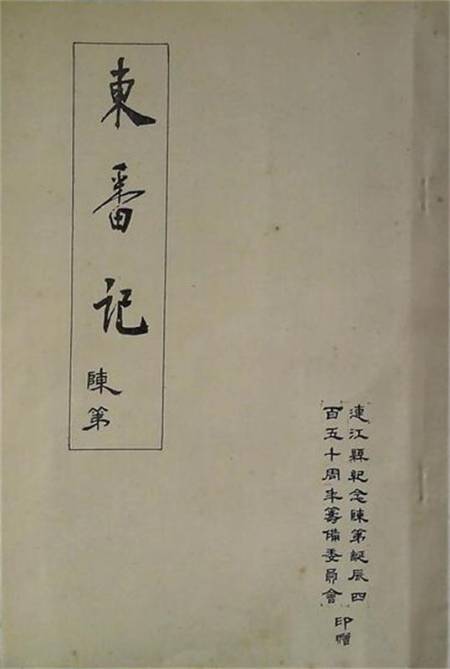 東番記
陳第
連江縣紀念陳第誕辰四
百五十周年籌備委員會
印贈